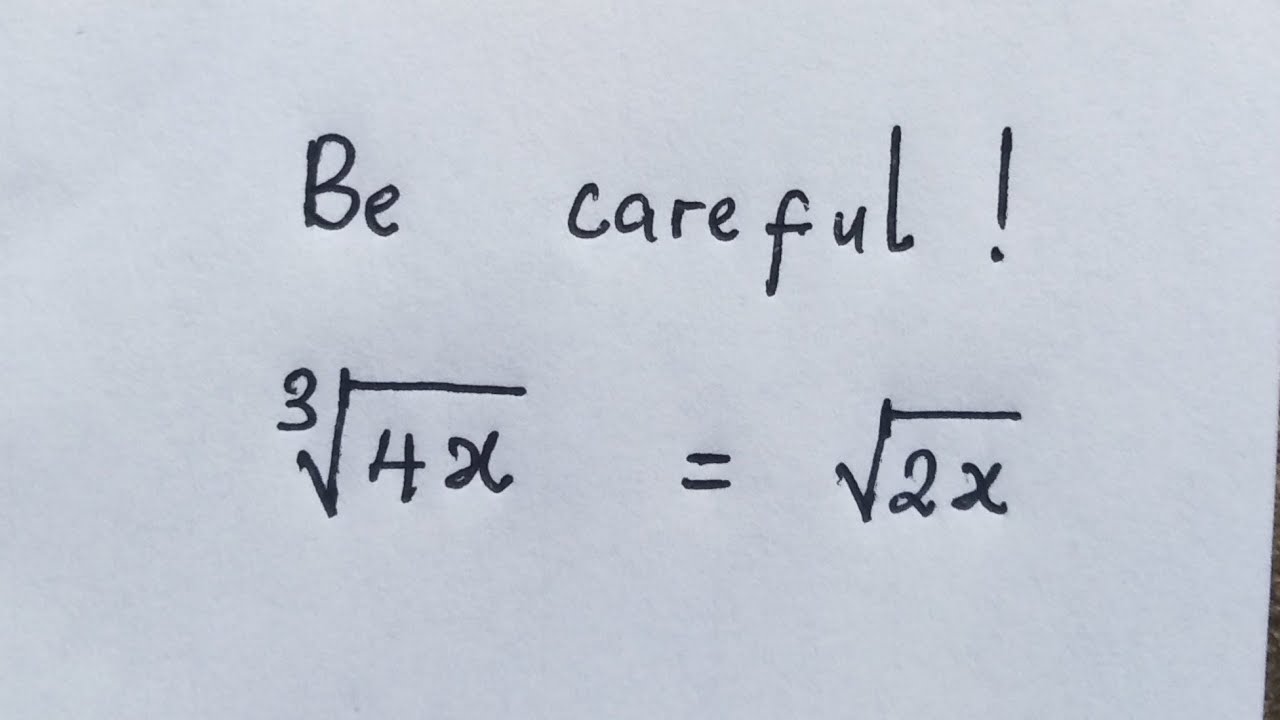 Be careful !
∛4x = √2x